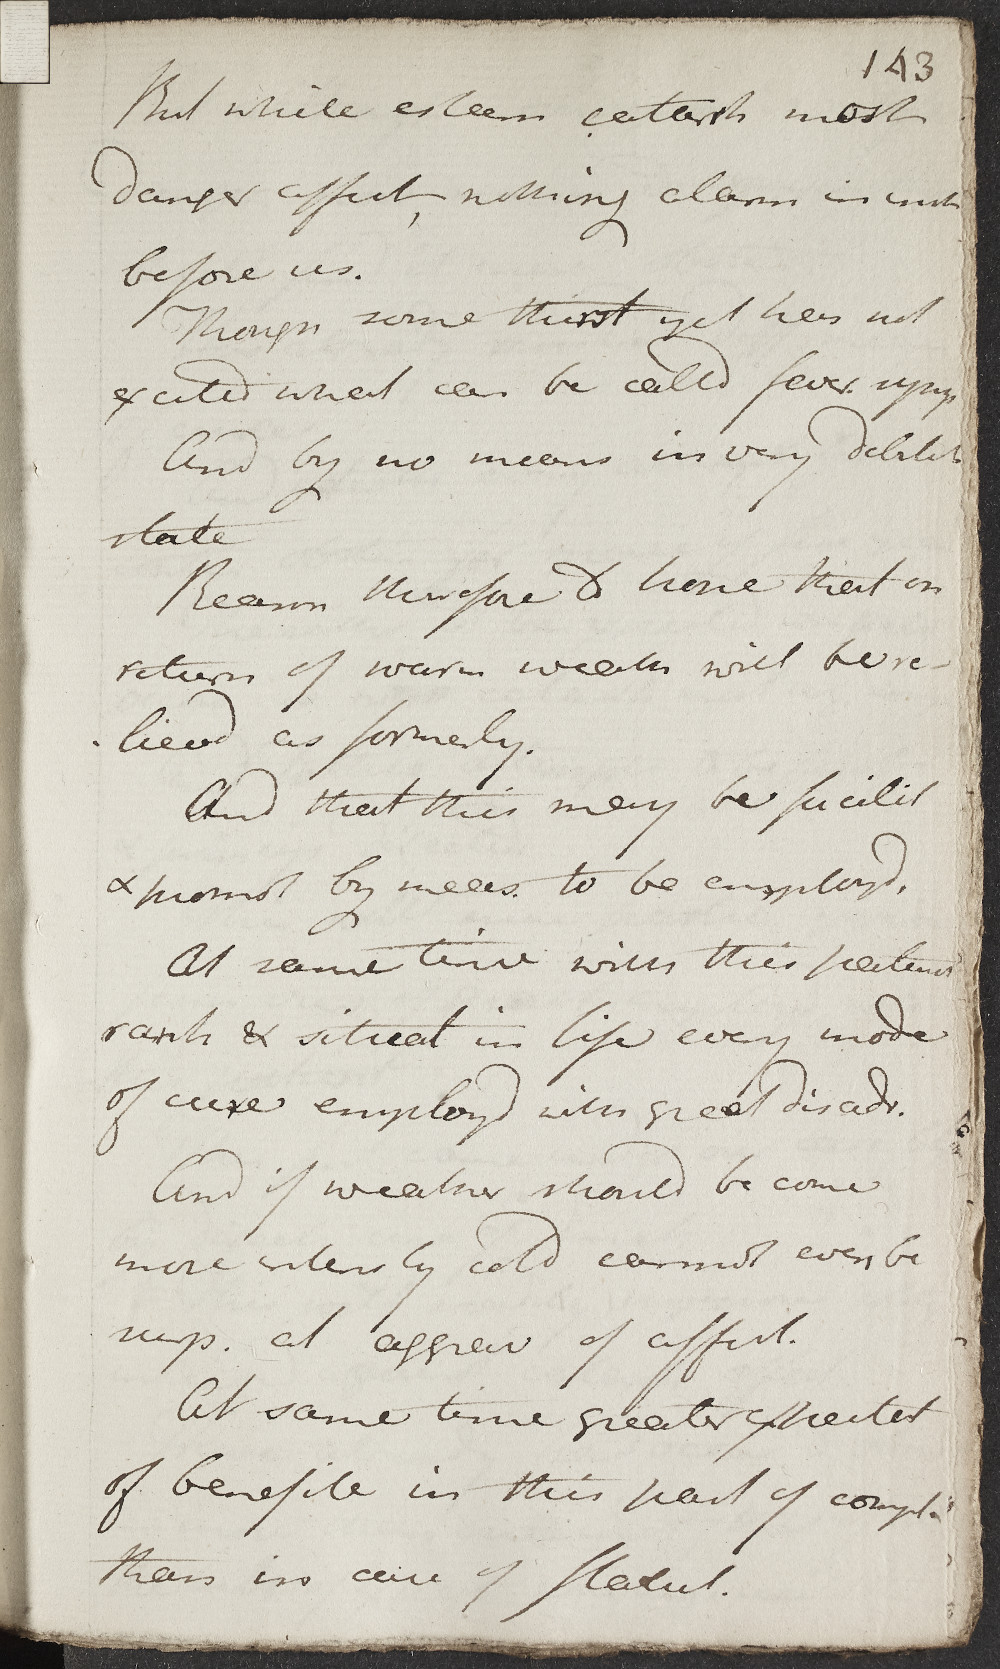 143
But while esteem catarrh most
danger affect, nothing alarm in
before us.
Though some thirst yet has not
excited what can be calld fever. symp
And by no means in very debilit
state
Reason therefore to hope that on
return of warm weath will be re-
lievd as formerly.
And that this may be facilit
& promot by means to be employd.
At same time with this patients
rank & situat in life every mode
of cure employd with great disadv.
And if weather should become
more intensly cold cannot even be
surp. at aggrav of affect.
At same time greater expectat
of benefite in this part of compl
than in case of flatul.